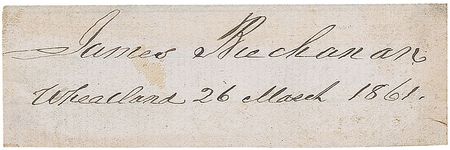 James Buchanan
Wheatland 26 March 1861.